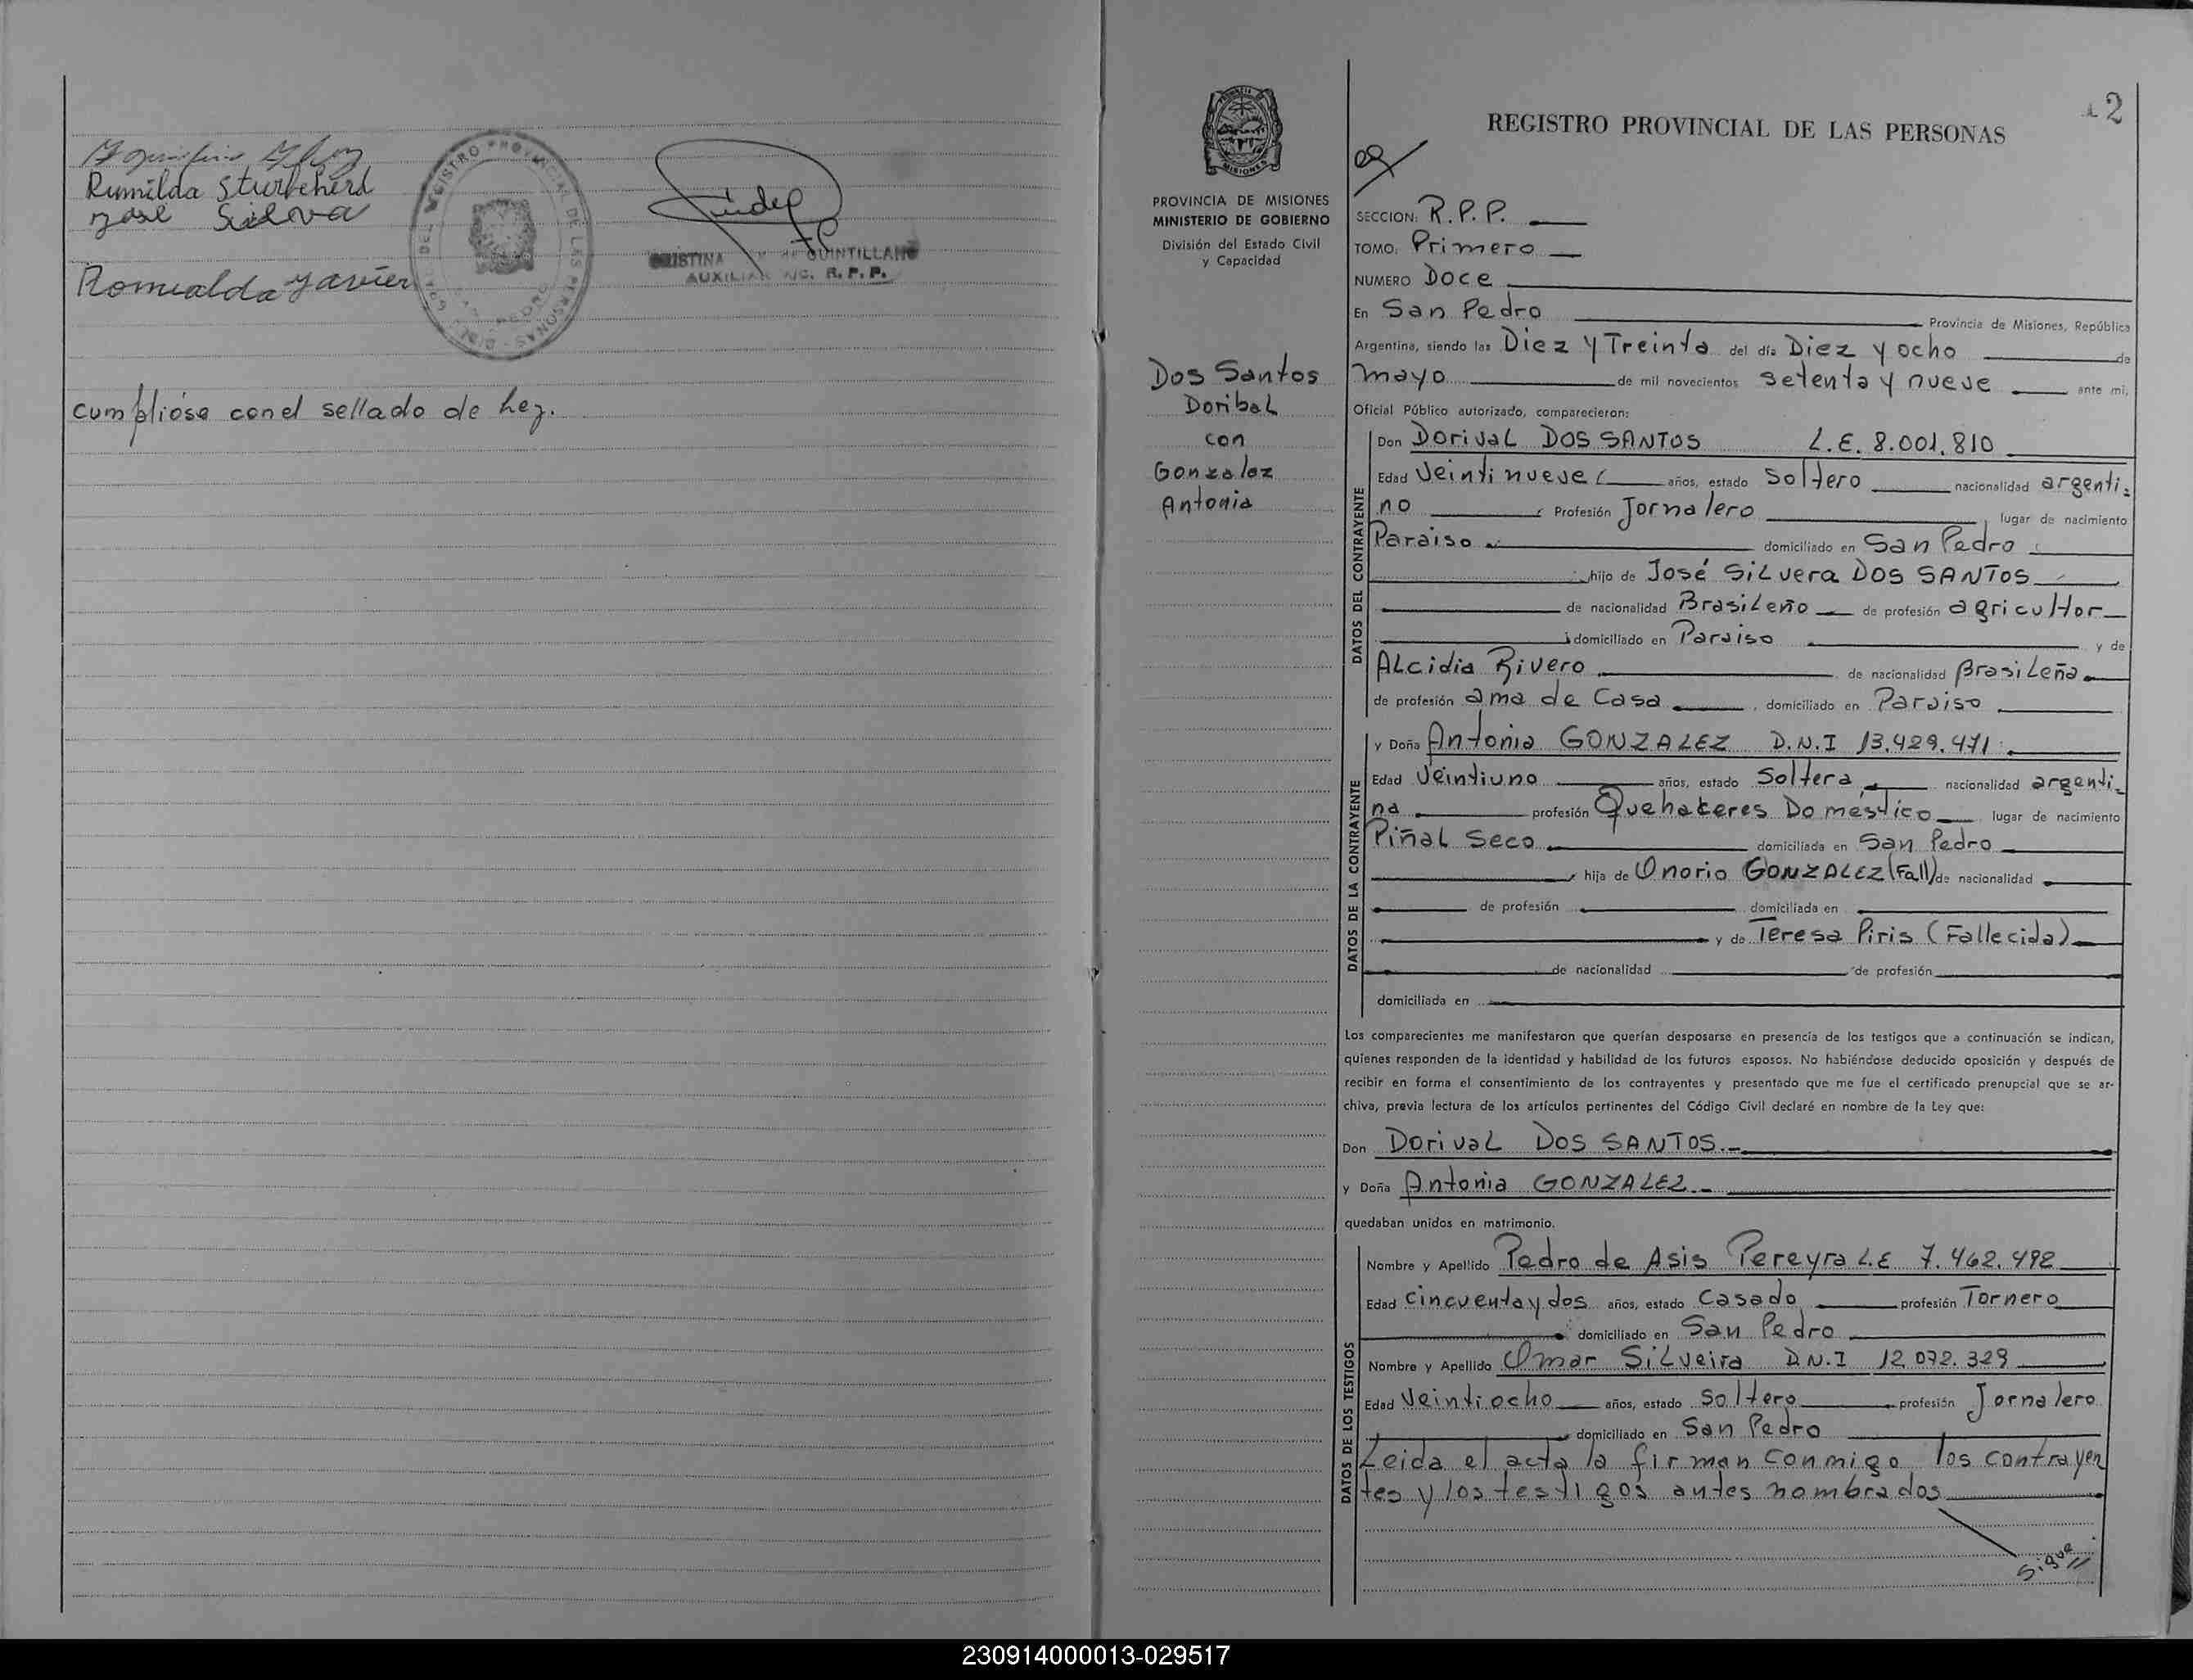 Rumilda Sturbeherd
José Silva
Romualda Javier
REGISTRO PROVINCIAL DE LAS PERSONAS
QUINTILLANO
AUXILIAR R. P. P.
cumplióse con el sellado de Ley.
2
REGISTRO PROVINCIAL DE LAS PERSONAS
PROVINCIA DE MISIONES
MINISTERIO DE GOBIERNO
División del Estado Civil
y Capacidad
Dos Santos
Doribal
con
Gonzalez
Antonia
SECCION: R.P.P.
TOMO: Primero
NUMERO Doce
En San Pedro Provincia de Misiones, República
Argentina, siendo las Diez y Treinta del día Diez y ocho de
mayo de mil novecientos setenta y nueve ante mi,
Oficial Público autorizado, comparecieron:
DATOS DEL CONTRAYENTE
Don Dorival DOS SANTOS L.E. 8.001.810
Edad Veintinueve años, estado Soltero nacionalidad argenti-
no Profesión Jornalero lugar de nacimiento
Paraiso domiciliado en San Pedro
hijo de José SiLvera DOS SANTOS
de nacionalidad Brasileño de profesión agricultor
domiciliado en Paraiso y de
ALcidia Rivero de nacionalidad Brasileña
de profesión ama de Casa, domiciliado en Paraiso
DATOS DE LA CONTRAYENTE
y Doña Antonia GONZALEZ D.N.I 13.429.471
Edad Veintiuno años, estado Soltera nacionalidad argenti-
na profesión Quehaceres Doméstico lugar de nacimiento
Piñal Seco domiciliada en San Pedro
hija de Onorio GONZALEZ (Fall) de nacionalidad
de profesión domiciliada en
y de Teresa Piris (Fallecida)
de nacionalidad de profesión
domiciliada en
Los comparecientes me manifestaron que querían desposarse en presencia de los testigos que a continuación se indican,
quienes responden de la identidad y habilidad de los futuros esposos. No habiéndose deducido oposición y después de
recibir en forma el consentimiento de los contrayentes y presentado que me fue el certificado prenupcial que se ar-
chiva, previa lectura de los artículos pertinentes del Código Civil declaré en nombre de la Ley que:
Don Dorival DOS SANTOS.-
y Doña Antonia GONZALEZ.-
quedaban unidos en matrimonio.
DATOS DE LOS TESTIGOS
Nombre y Apellido Pedro de Asis Pereyra L.E 7.462.492
Edad cincuenta y dos años, estado Casado profesión Tornero
domiciliado en San Pedro
Nombre y Apellido Omar SiLveira D.N.I 12.072.329
Edad Veintiocho años, estado Soltero profesión Jornalero
domiciliado en San Pedro
Leida el acta la firman conmigo los contrayen
tes y los testigos antes nombrados
Sigue
230914000013-029517